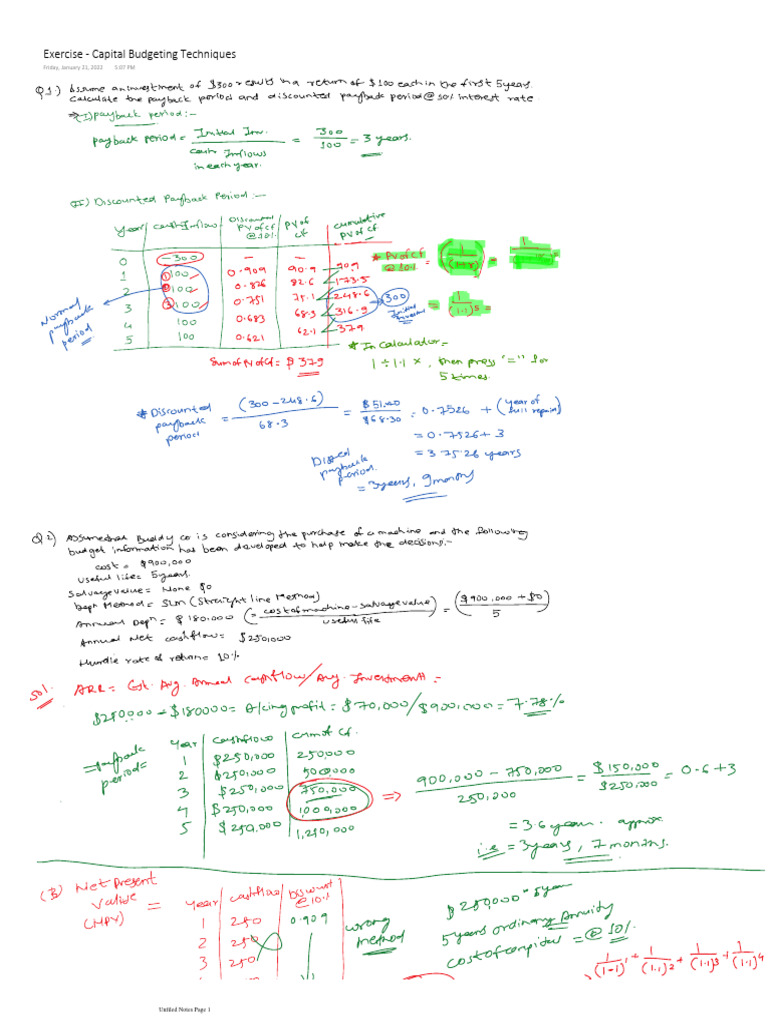 Exercise - Capital Budgeting Techniques
Friday, January 21, 2022 5:07 PM
Q1) Assume an investment of $300 results in a return of $100 each in the first 5 years.
Calculate the payback period and discounted payback period @ 10% interest rate.
⇒ (I) payback period:-
payback period = Initial Inv. / cash Inflows in each year. = 300 / 100 = 3 years.
(II) Discounted Payback Period:-
Year | cash Inflow | Discounted PV of CF @ 10% | PV of CF | cumulative PV of CF
0 | -300 | - | - | -
1 | ① 100 | 0.909 | 90.9 | 90.9
2 | ② 100 | 0.826 | 82.6 | 173.5
3 | ③ 100 | 0.751 | 75.1 | 248.6
4 | 100 | 0.683 | 68.3 | 316.9
5 | 100 | 0.621 | 62.1 | 379
Normal payback period
300 Initial
* PV of CF @ 10% = (1 / (1+r)) =
= 1 / (1.1)5 =
* In Calculator:-
1 ÷ 1.1 x, then press "=" for
5 times.
Sum of PV of CF = $ 379
* Discounted payback period = (300 - 248.6) / 68.3 = $ 51.40 / $68.30 = 0.7526 + (year of full repaid)
= 0.7526 + 3
= 3.7526 years
payback period. = 3 years, 9 months
Q2) Assume that Buddy co is considering the purchase of a machine and the following
budget information has been developed to help make the decisions.-
cost = $900,000
Useful life = 5 years.
Salvage value = None $0
Depn Method = SLM (Straight line Method)
Annual Depn = $ 180,000 (= cost of machine - salvage value / useful life) = ($900,000 + $0) / 5
Annual Net cashflow = $250,000
Hurdle rate of return = 10%
Sol. ARR = Est. Avg. Annual Cashflow / Avg. Investment :-
$250000 - $180000 = A/cing profit = $70,000 / $900,000 = 7.78%
= payback period =
Year | cashflow | cummt CF.
1 | $250,000 | 250,000
2 | $250,000 | 500,000
3 | $250,000 | 750,000
4 | $250,000 | 1,000,000
5 | $250,000 | 1,250,000
⇒ 900,000 - 750,000 / 250,000 = $150,000 / $250,000 = 0.6 + 3
= 3.6 year. approx
i.e = 3 years, 7 months.
(3) Net Present Value (NPV) =
Year | cashflow | @ 10%
1 | 250 | 0.909
2 | 250
3 | 250
wrong method
$250,000 - 5 year
5 years ordinary Annuity
cost of capital = @ 10%
1/(1.1)1 + 1/(1.1)2 + 1/(1.1)3 + 1/(1.1)4
Untitled Notes Page 1